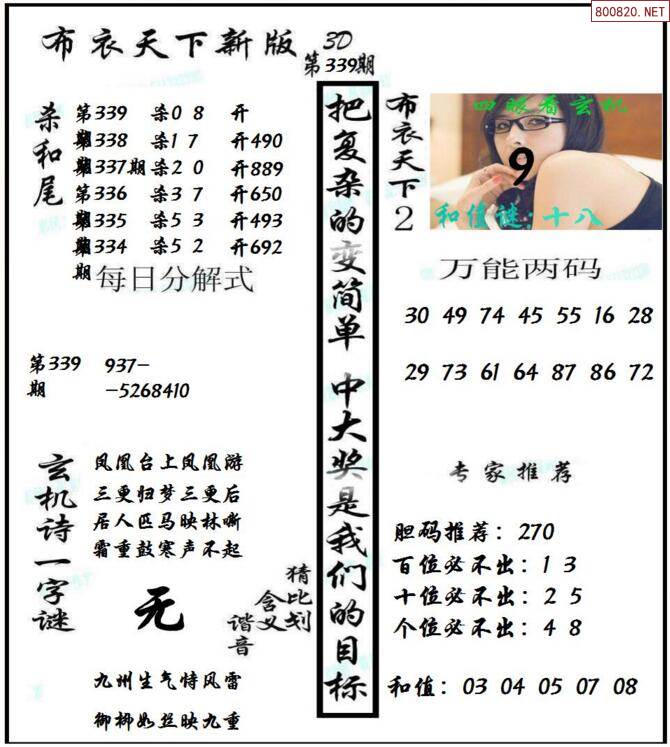 800820.NET
布衣天下新版 3D
第339期
杀和尾
第339期 杀0 8 开
第338期 杀1 7 开490
第337期 杀2 0 开889
第336期 杀3 7 开650
第335期 杀5 3 开493
第334期 杀5 2 开692
每日分解式
第339期 937-
-5268410
玄机诗一字谜
凤凰台上凤凰游
三更归梦三更后
居人匹马映林嘶
霜重鼓寒声不起
无
猜比划
含义
谐音
九州生气恃风雷
御柳如丝映九重
把复杂的变简单 中大奖是我们的目标
布衣天下2
四眼看玄机
9
和值谜:十八
万能两码
30 49 74 45 55 16 28
29 73 61 64 87 86 72
专家推荐
胆码推荐：270
百位必不出：1 3
十位必不出：2 5
个位必不出：4 8
和值：03 04 05 07 08